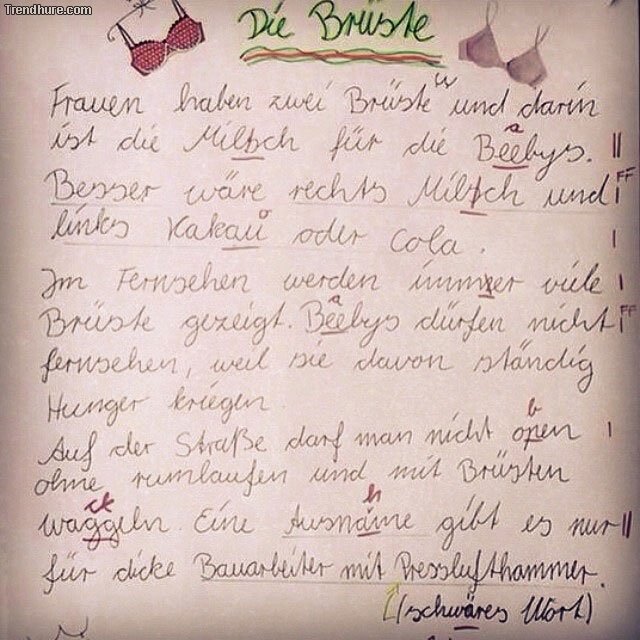 Trendhure.com
Die Brüste
Frauen haben zwei Brüste und darin
ist die Miltsch für die Bëebys. a ||
Besser wäre rechts Miltsch und FF
links Kakau o oder Cola. |
Im Fernsehen werden immer viele |
Brüste gezeigt. Beebys a dürfen nicht FF
fernsehen, weil sie davon ständig
Hunger kriegen.
Auf der Straße darf man nicht open b |
ohne rumlaufen und mit Brüsten
waggeln ck. Eine Ausname h gibt es nur ||
für dicke Bauarbeiter mit Presslufthammer.
(schwäres Wort)